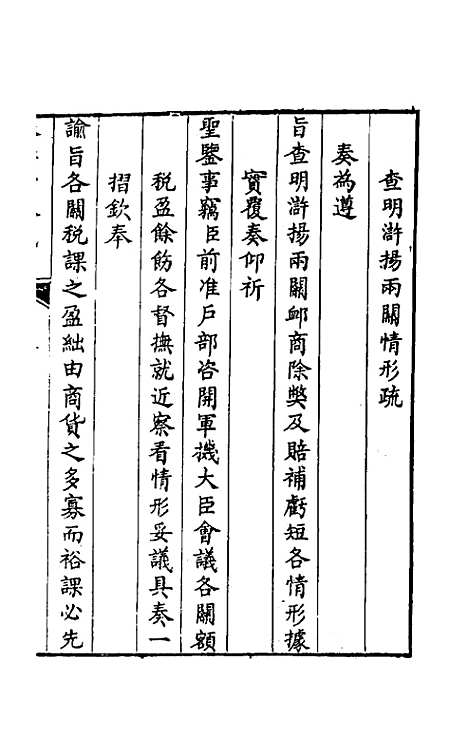 查明滸揚兩關情形疏
奏為遵
旨查明滸揚兩關卹商除獘及賠補虧短各情形據
實覆奏仰祈
聖鑒事竊臣前准戶部咨開軍機大臣會議各關額
稅盈餘飭各督撫就近察看情形妥議具奏一
摺欽奉
諭旨各關稅課之盈絀由商貨之多寡而裕課必先